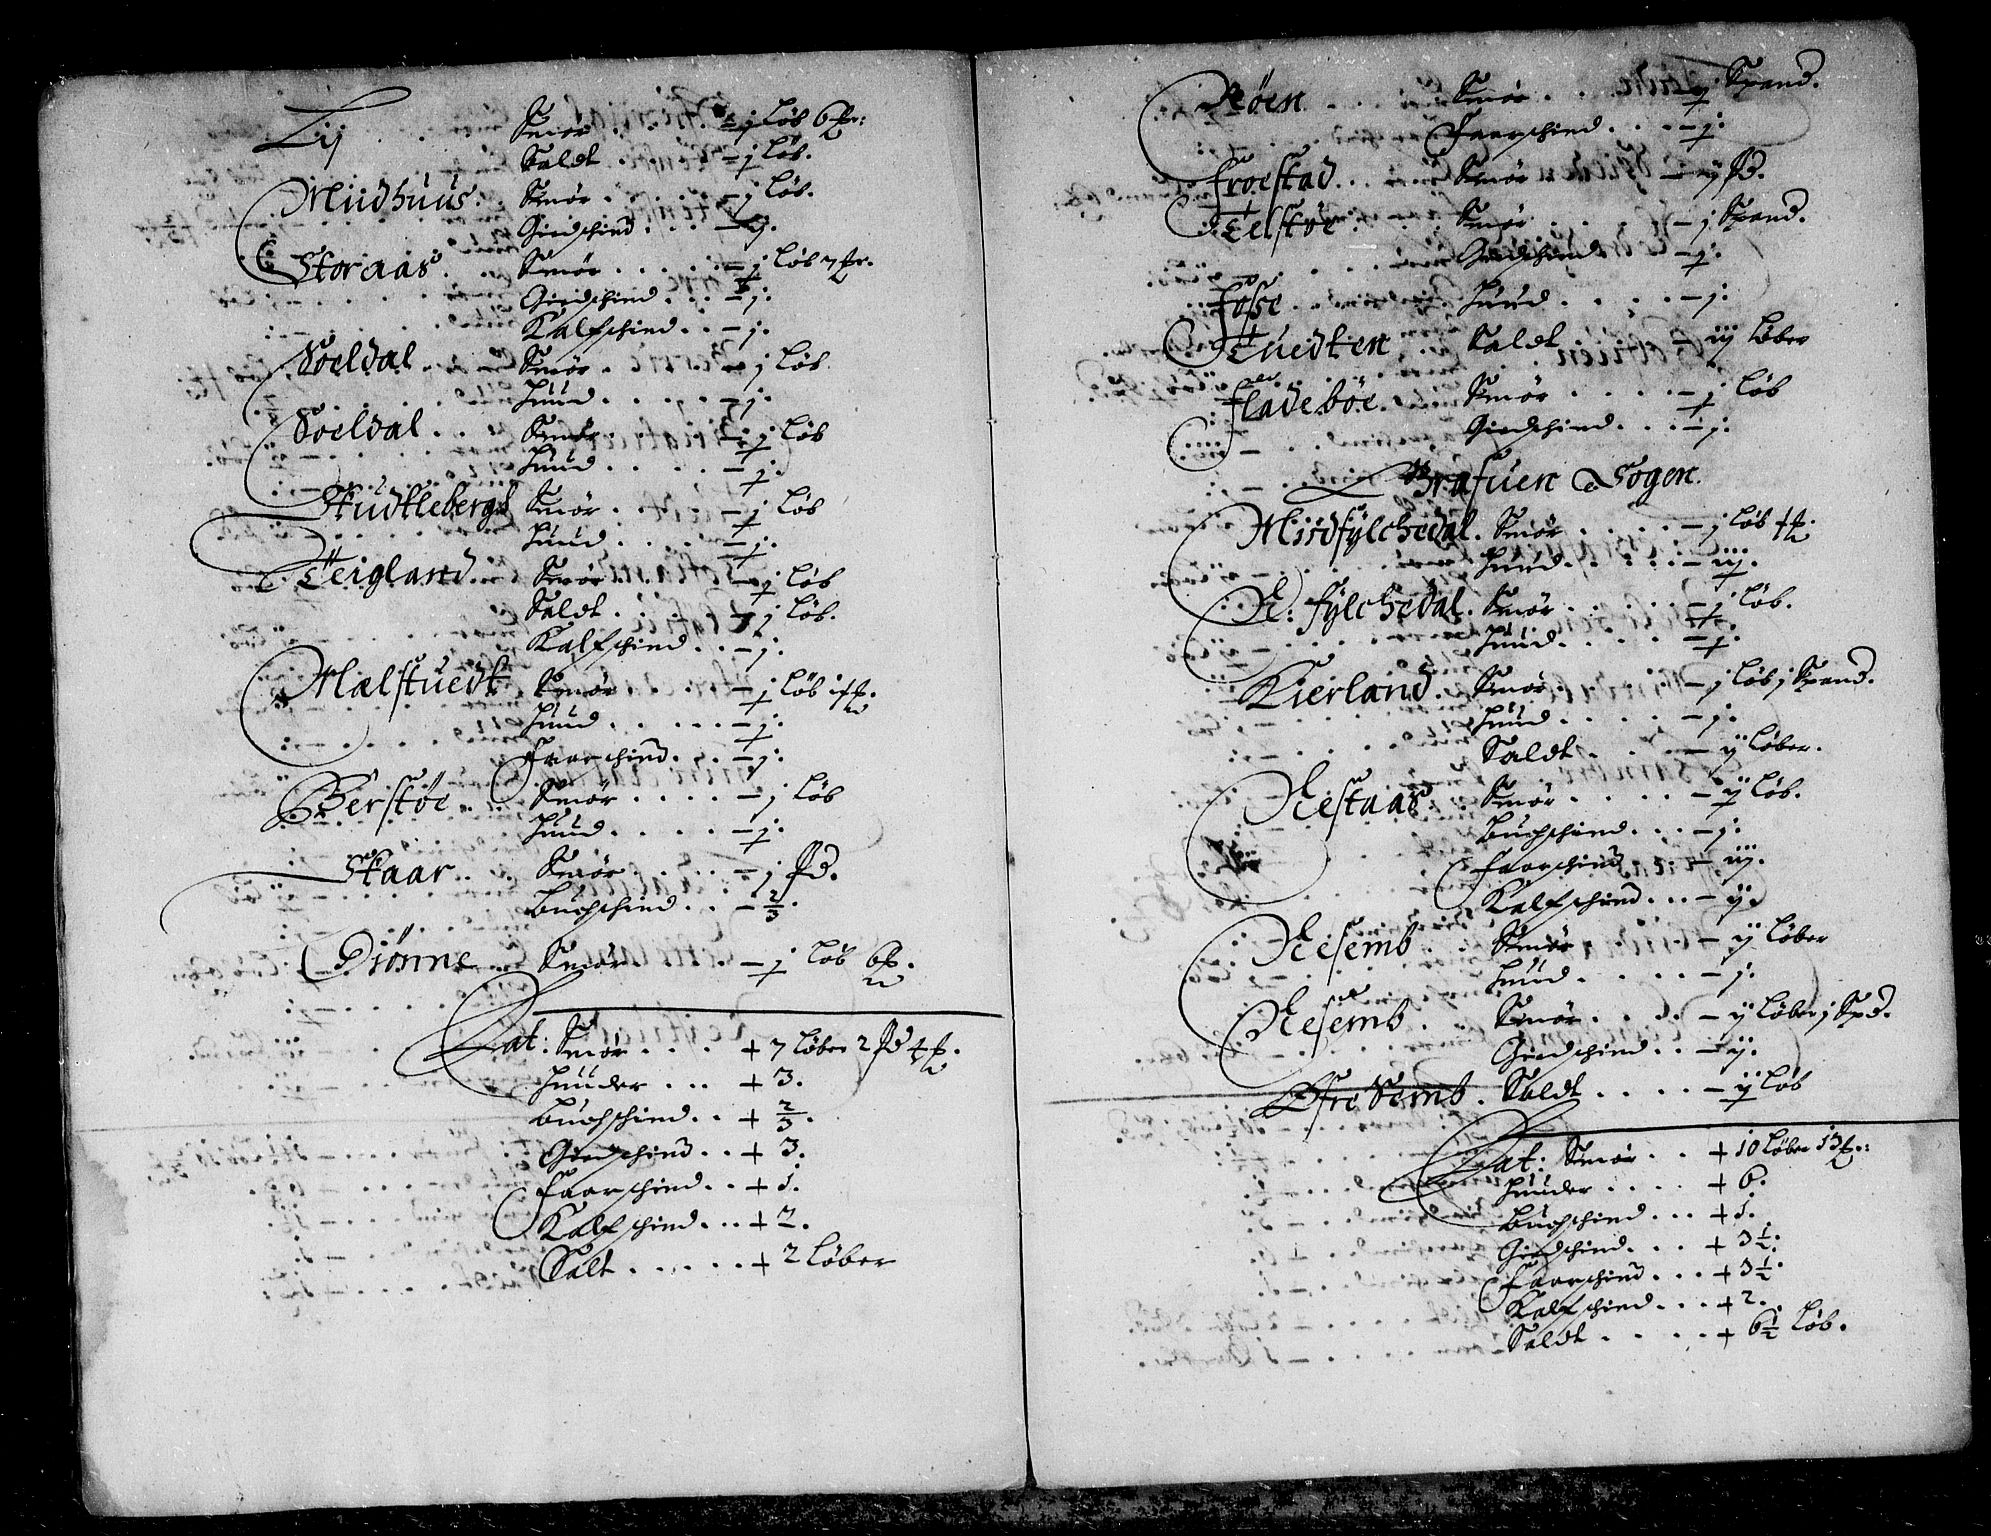 Lij . . Smør . . . . – j Løb 6 ℔:
Saldt . . . – j Løb.
Miidhuus. Smør . . . . – j Løb.
Giedschind . . . – ij.
Storaas . . Smør . . . . . – j Løb 7 ℔.
Giedschind . . . – j.
Kalfschind . . – j.
Soeldal . . . Smør . . . . – j Løb
Huud . . . . . – j.
Soeldal . . . Smør . . . . – j Løb
Huud . . . . . – j.
Skudtleberg Smør . . . . – j Løb
Huud . . . . – j.
Teigland . . Smør . . . . . – j Løb
Saldt . . . . – j Løb.
Kalfschind . . – j.
Mælstuedt Smør . . . – j Løb
Huud . . . . . – j.
Faarschind . . . – j.
Berstøe . Smør . . . . – j Løb
Huud . . . . . – j.
Skaar . . . Smør . . . . – j Pd.
Buchschind . . – 2/3.
Diønne . . Smør . . . . – j Løb 6 ℔.
Lat: Smør . . . + 7 Løber 2 Pd 4 ℔.
Huuder . . . + 3.
Buchschind . . + 2/3.
Giedschind . . + 3.
Faarschind . . + 1.
Kalfschind . . . + 2.
Salt . . . . . + 2 Løber
Røen . . . . Smør . . . j Spand.
Faarschind . . . – j.
Froestad . . . . Smør . . . . – ij Pd.
Telstøe . . . Smør . . . . – j Spand.
Giedschind . . – j.
Fosse . . . . Huud . . . . . – j.
Tuedten . . Saldt . . . . – iij Løber
Fladebøe . . Smør . . . . – j Løb
Giedschind . . . – j.
Grafuen Sogen.
Miidfylchedal. Smør . . . . – j Løb 4 ℔.
Huud . . . . . – iij.
N: fylchedal. Smør . . . . – j Løb.
Huud . . . . – j.
Kierland . Smør . . . . – j Løb j Spand.
Huud . . . . – j.
Saldt . . . . – ij Løber.
Nestaas . Smør . . . . – ij Løb.
Buchschind . . . – j.
Faarschind . . – iij.
Kalfschind . . . – ij.
Nesemb . . Smør . . . . – ij Løber
Huud . . . . . – j.
Nesemb . . Smør . . . . – ij Løber j Spd.
Giedschind . . – ij.
Øfre Semb . Saldt . . . . – ij Løb
Lat: Smør . . + 10 Løber 13 ℔:
Huuder . . . . + 6.
Buchschind . . . + 1.
Giedschind . . . + 3 1/2.
Faarschind . . . + 3 1/2.
Kalfschind . . . + 2.
Saldt . . . . . + 6 1/2 Løb.